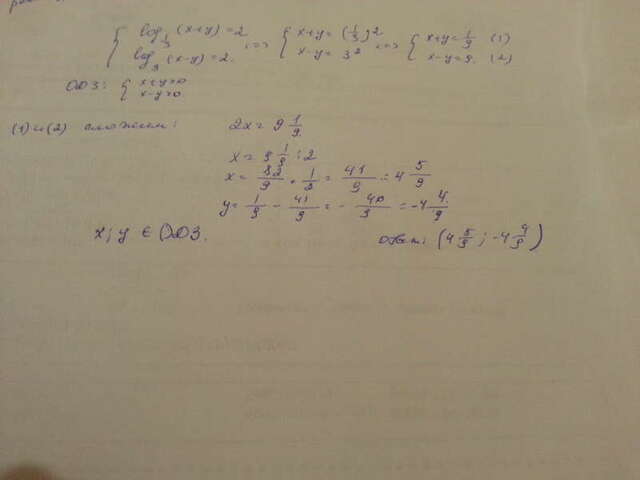 { log_{1/3} (x+y) = 2 <=> { x+y = (1/3)^2 <=> { x+y = 1/9 (1)
{ log_3 (x-y) = 2. { x-y = 3^2 { x-y = 9. (2)
ОДЗ: { x+y>0
{ x-y>0
(1) и (2) сложим: 2x = 9 1/9
x = 9 1/9 : 2
x = 82/9 · 1/2 = 41/9 = 4 5/9
y = 1/9 - 41/9 = - 40/9 = -4 4/9
x; y ∈ ОДЗ. ответ: (4 5/9 ; -4 4/9)